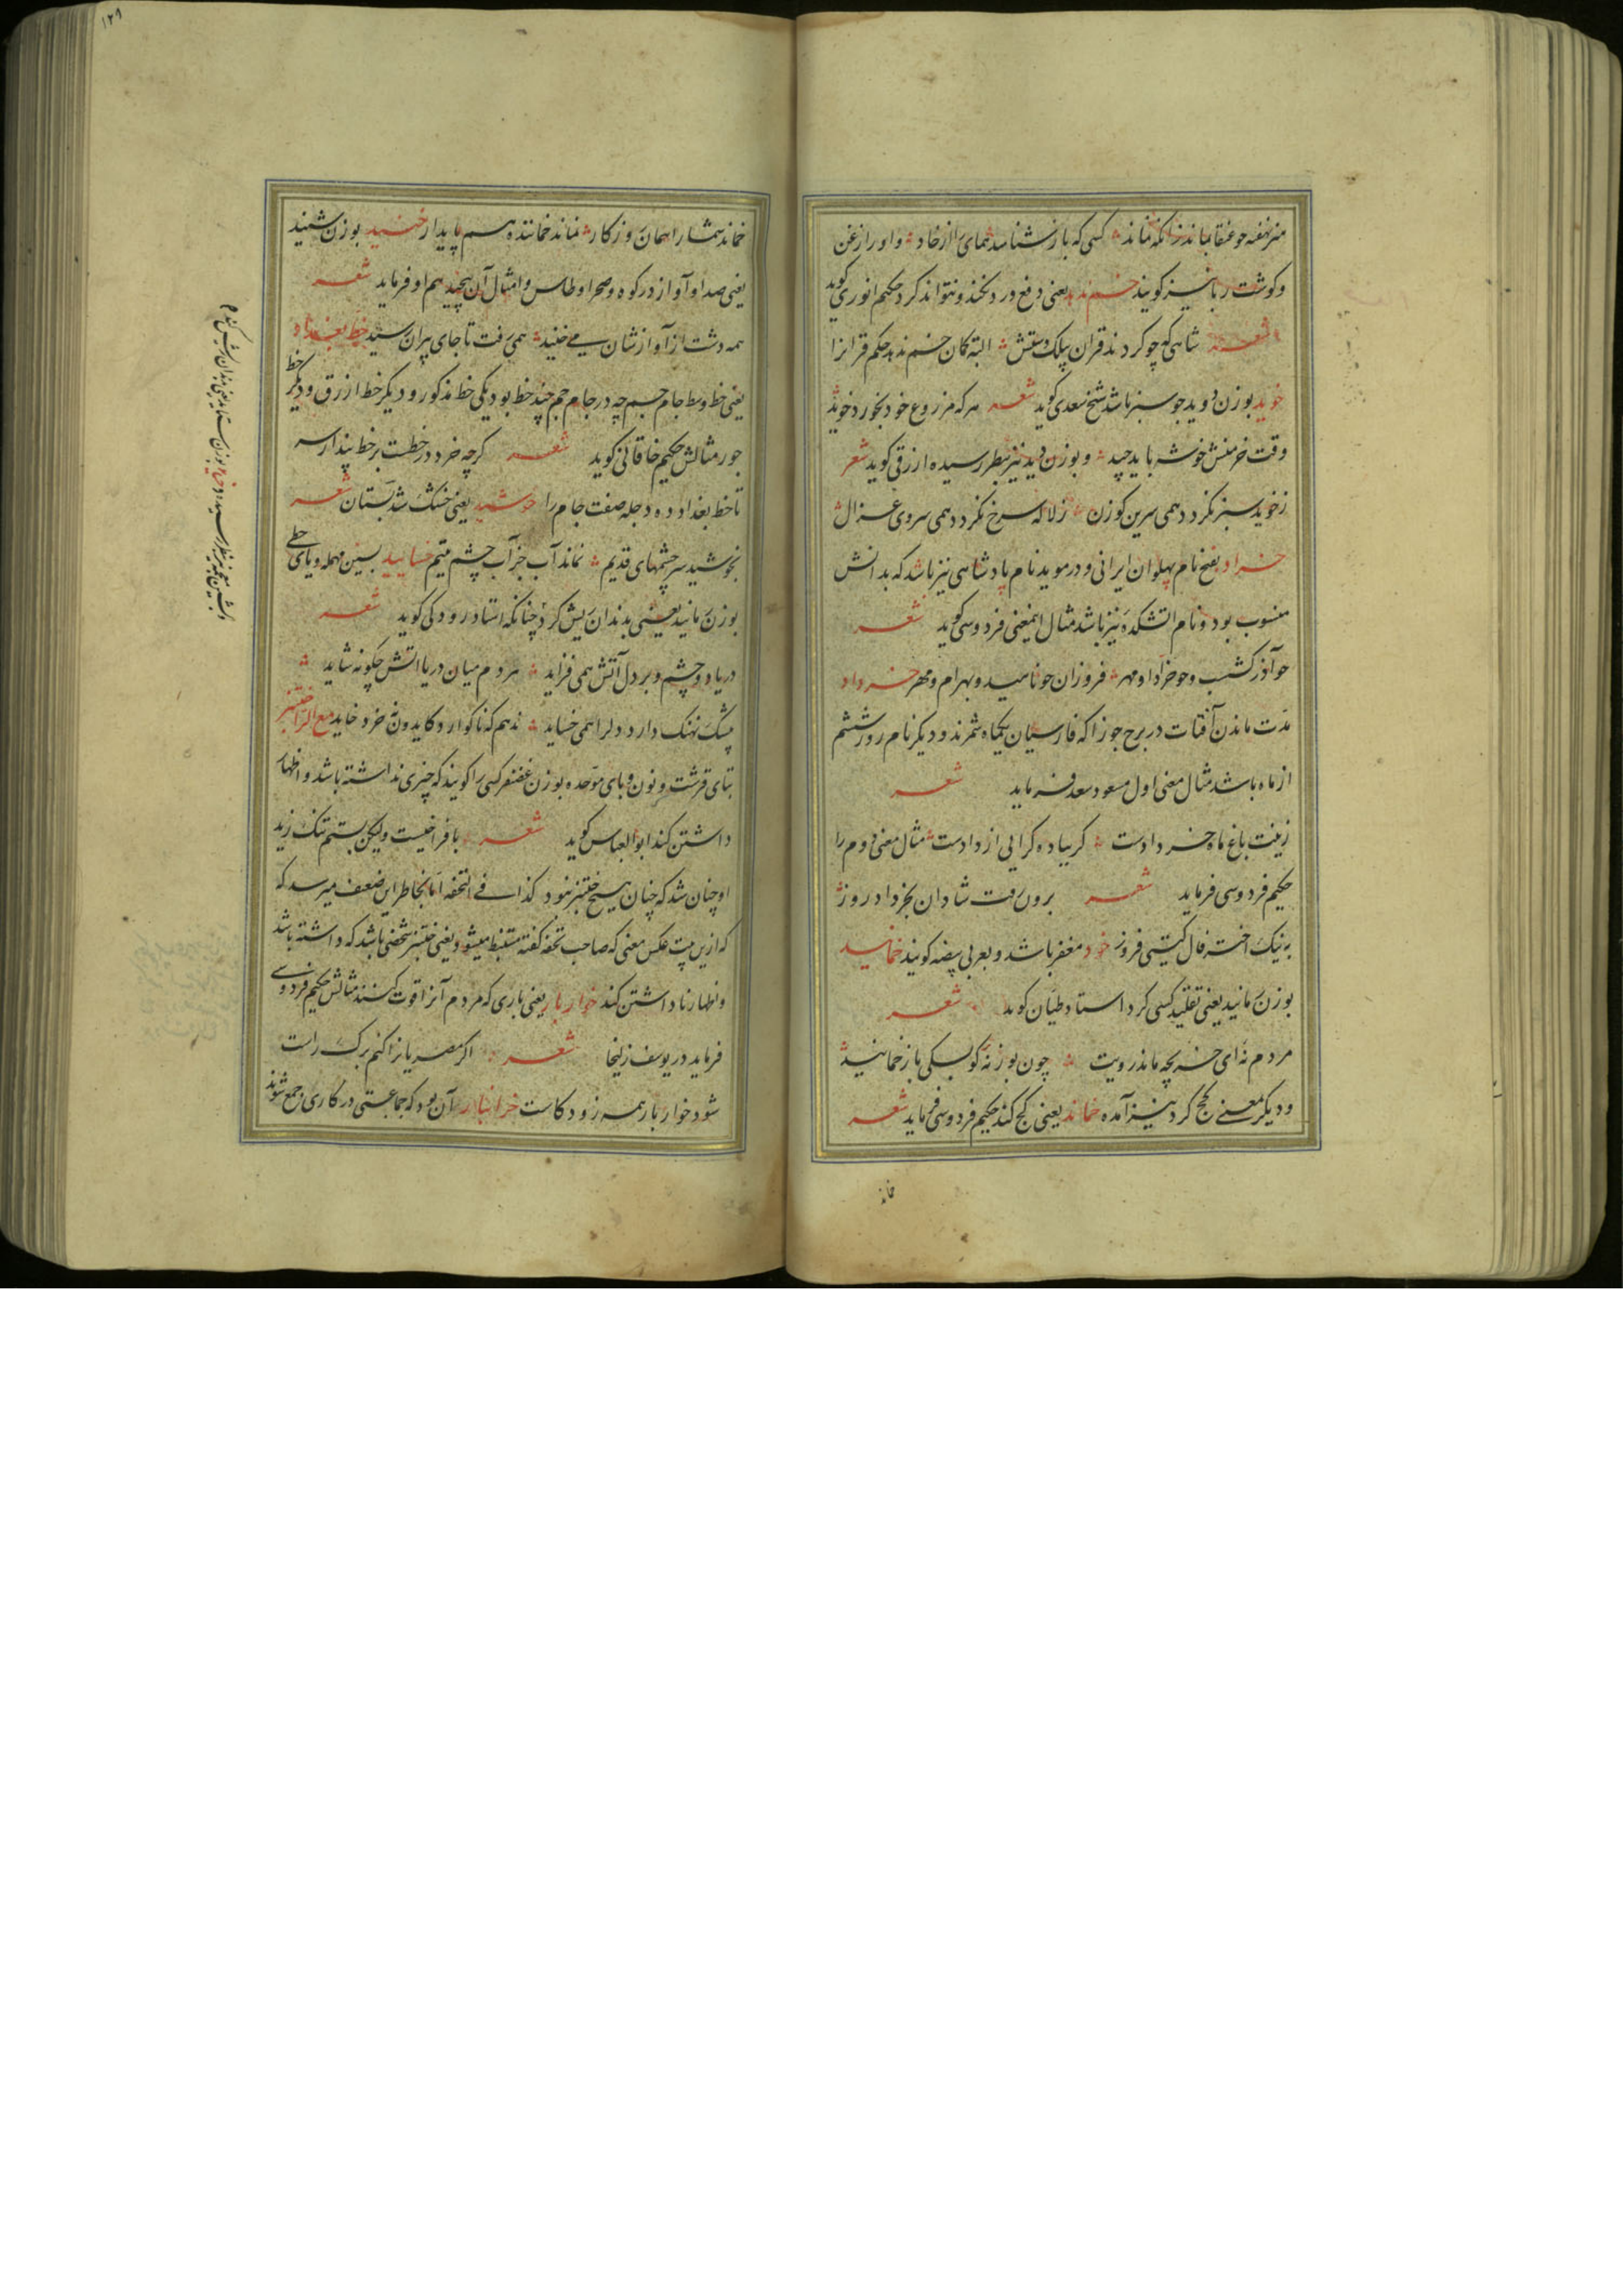 هنر نهفته چو عنقا بماند زانکه نماند کسی که باز شناسد همای را از خاد و او را زغن
و گوشت ربا نیز گویند خسم ندهد یعنی دفع درد نکند و نتواند کرد حکیم انوری گوید
شعر شاهی که چو کردند قران بیلک و دستش البته کمان خسم ندهد حکم قران را
خوید بوزن دوید جو سبز باشد شیخ سعدی گوید شعر هر که مزروع خود بخورد خوید
وقت خرمنش خوشه باید چید و بوزن دید نیز بنظر رسیده ازرقی گوید شعر
ز خوید سبز نگردد همی سرین گوزن ز لاله سرخ نگردد همی سروی غزال
خراد بفتح نام پهلوان ایرانی و در موید نام پادشاهی نیز باشد که بدانش
منسوب بود و نام آتشکده نیز باشد مثال اینمعنی فردوسی گوید شعر
چو آذر گشسب و چو خراد و مهر فروزان چو ناهید و بهرام و مهر خرداد
مدت ماندن آفتاب در برج جوزا که فارسیان یکماه شمرند و دیگر نام روز ششم
از ماه باشد مثال معنی اول مسعود سعد فرماید شعر
زینت باغ ماه خردادست کر بیاده کرایی از دادست مثال معنی دوم را
حکیم فردوسی فرماید شعر برون رفت شادان بخرداد روز
به نیک اختر و فال گیتی فروز خود مغفر باشد و بعربی بیضه گویند خمانید
بوزن مانید یعنی تقلید کسی کرد استاد طیان گوید شعر
مردم نه ای خر بچه ماند رویت چون بوزنه کو بسکی باز خمانید
و دیگر معنی کج کرد نیز آمده خماند یعنی کج کند حکیم فردوسی فرماید شعر
خماند
۱۲۹
خماند شما را همان روزگار نماند خماننده هم پایدار خنید بوزن شنید
یعنی صدا و آواز در کوه و صحرا و طاس و امثال آن پیچید هم او فرماید شعر
همه دشت از آوازشان می خنید همی رفت تا جای پیران رسید خط بغداد
یعنی خط وسط جام جم چه در جام جم چند خط بود یکی خط مذکور و دیگر خط ازرق و دیگر خط
جور مثالش حکیم خاقانی گوید شعر گرچه خرد در خطست بر خط بندار سر
تا خط بغداد ده دجله صفت جام را خوشید یعنی خشک شد بستان شعر
بخوشید سرچشمهای قدیم نماند آب جز آب چشم یتیم خسایید بسین مهمله و یای حطی
بوزن مانید یعنی بدندان ریش کرد چنانکه استاد رودکی گوید شعر
دریا دو چشم و بر دل آتش همی فزاید مردم میان دریا آتش چگونه شاید
بیشک نهنگ دارد دل را همی خساید ندهم که ناگوارد کایدون نه خرد خاید مع الرا ختنبر
بتای قرشت و نون و بای موحده بوزن غضنفر کسی را گویند که چیزی نداشته باشد و اظهار
داشتن کند ابو العباس گوید شعر با فراخیست ولیکن بستم تنگ زید
او چنان شد که چنان هیچ ختنبر نبود کذا فی التحفه اما بخاطر این ضعیف میرسد که
که ازین بیت عکس معنی که صاحب تحفه گفته مستنبط میشود یعنی ختنبر شخصی باشد که داشته باشد
و اظهار ناداشتن کند خوار بار یعنی باری که مردم آنرا قوت کنند مثالش حکیم فردوسی
فرماید در یوسف زلیخا شعر اگر مصریانرا کنم برک راست
شود خوار بار همه زود کاست خرانبار آن بود که جماعتی در کاری جمع شوند